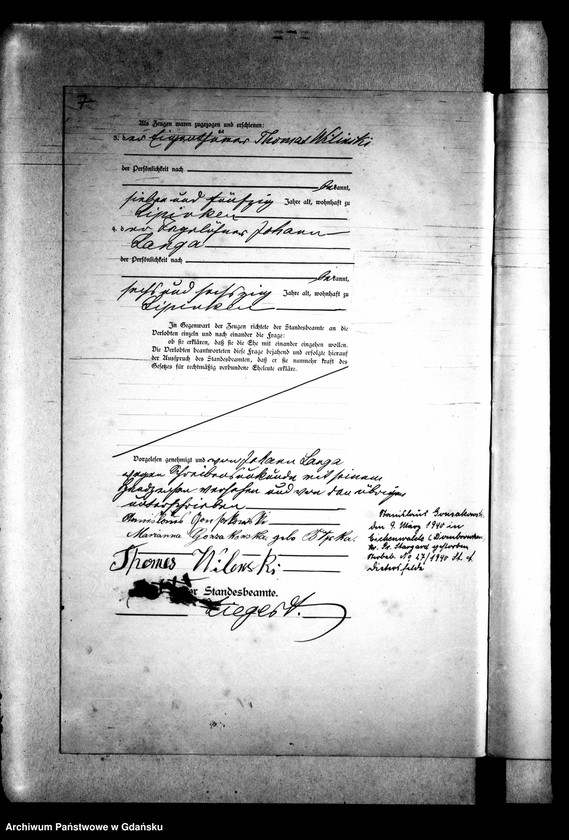 7
Als Zeugen waren zugezogen und erschienen:
3. der Eigenthümer Thomas Wilinski
der Persönlichkeit nach
bekannt,
sieben und fünfzig Jahre alt, wohnhaft zu
Lipinken
4. der Johann
Langa
der Persönlichkeit nach
bekannt,
sechs und sechszig Jahre alt, wohnhaft zu
Lipinken
In Gegenwart der Zeugen richtete der Standesbeamte an die
Verlobten einzeln und nach einander die Frage:
ob sie erklären, daß sie die Ehe mit einander eingehen wollen.
Die Verlobten beantworteten diese Frage bejahend und erfolgte hierauf
der Ausspruch des Standesbeamten, daß er sie nunmehr kraft des
Gesetzes für rechtmäßig verbundene Eheleute erkläre.
Vorgelesen genehmigt und von Johann Langa
wegen Schreibensunkunde mit seinem
Handzeichen versehen und von den übrigen
unterschrieben
Marianna geb.
Thomas Wilenski
Der Standesbeamte.
Ziegert.
Stanislaus
den 9. März 1940 in
Eichenwalde (Dombrowken
Kr. Pr. Stargard gestorben
Sterbeb. No 27/1940 St. A.
Archiwum Państwowe w Gdańsku